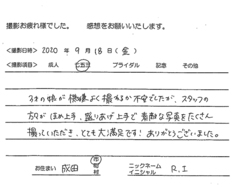 撮影お疲れ様でした。 感想をお願いいたします。
<撮影日時> 2020 年 9 月 18 日 (金)
<撮影項目> 成人 七五三 ブライダル 記念 その他
3才の娘が機嫌よく撮れるか不安でしたが、スタッフの
方がほめ上手、盛りあげ上手で素敵な写真をたくさん
撮っていただき、とても大満足です! ありがとうございました。
お住まい 成田 市 町 村 ニックネーム イニシャル R.I